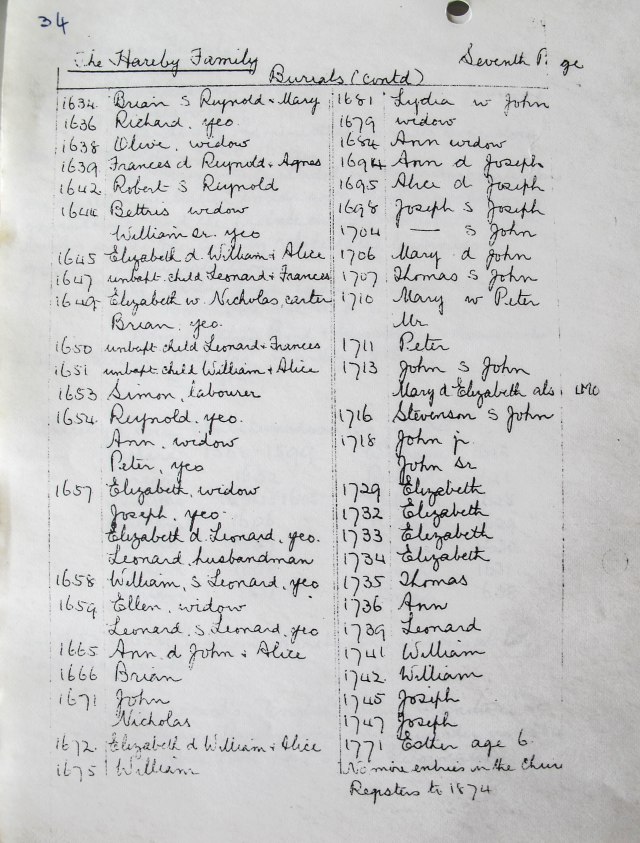 34
The Hareby Family
Seventh P ge
Burials (contd)
1634 Brian s Reynold + Mary
1636 Richard, yeo.
1638 Olive, widow
1639 Frances d Reynold + Agnes
1642 Robert s Reynold
1644 Bettris widow
William sr. yeo
1645 Elizabeth d William + Alice
1647 unbapt. child Leonard + Frances
1649 Elizabeth w. Nicholas, carter
Brian, yeo.
1650 unbapt child Leonard + Frances
1651 unbapt child William + Alice
1653 Simon, labourer
1654 Reynold, yeo.
Ann, widow
Peter, yeo
1657 Elizabeth, widow
Joseph, yeo.
Elizabeth d. Leonard, yeo.
Leonard, husbandman
1658 William, s Leonard, yeo
1659 Ellen, widow
Leonard, s. Leonard, yeo
1665 Ann d John + Alice
1666 Brian
1671 John
Nicholas
1672 Elizabeth d William + Alice
1675 William
1681 Lydia w John
1679 widow
1684 Ann widow
1694 Ann d Joseph
1695 Alice d Joseph
1698 Joseph s Joseph
1704 — s John
1706 Mary d John
1707 Thomas s John
1710 Mary w Peter
Mr.
1711 Peter
1713 John s John
Mary d Elizabeth als
1716 Stevenson s John
1718 John jr.
John Sr
1729 Elizabeth
1732 Elizabeth
1733 Elizabeth
1734 Elizabeth
1735 Thomas
1736 Ann
1739 Leonard
1741 William
1742 William
1745 Joseph
1747 Joseph
1771 Esther age 6
No more entries in the Chur
Registers to 1874